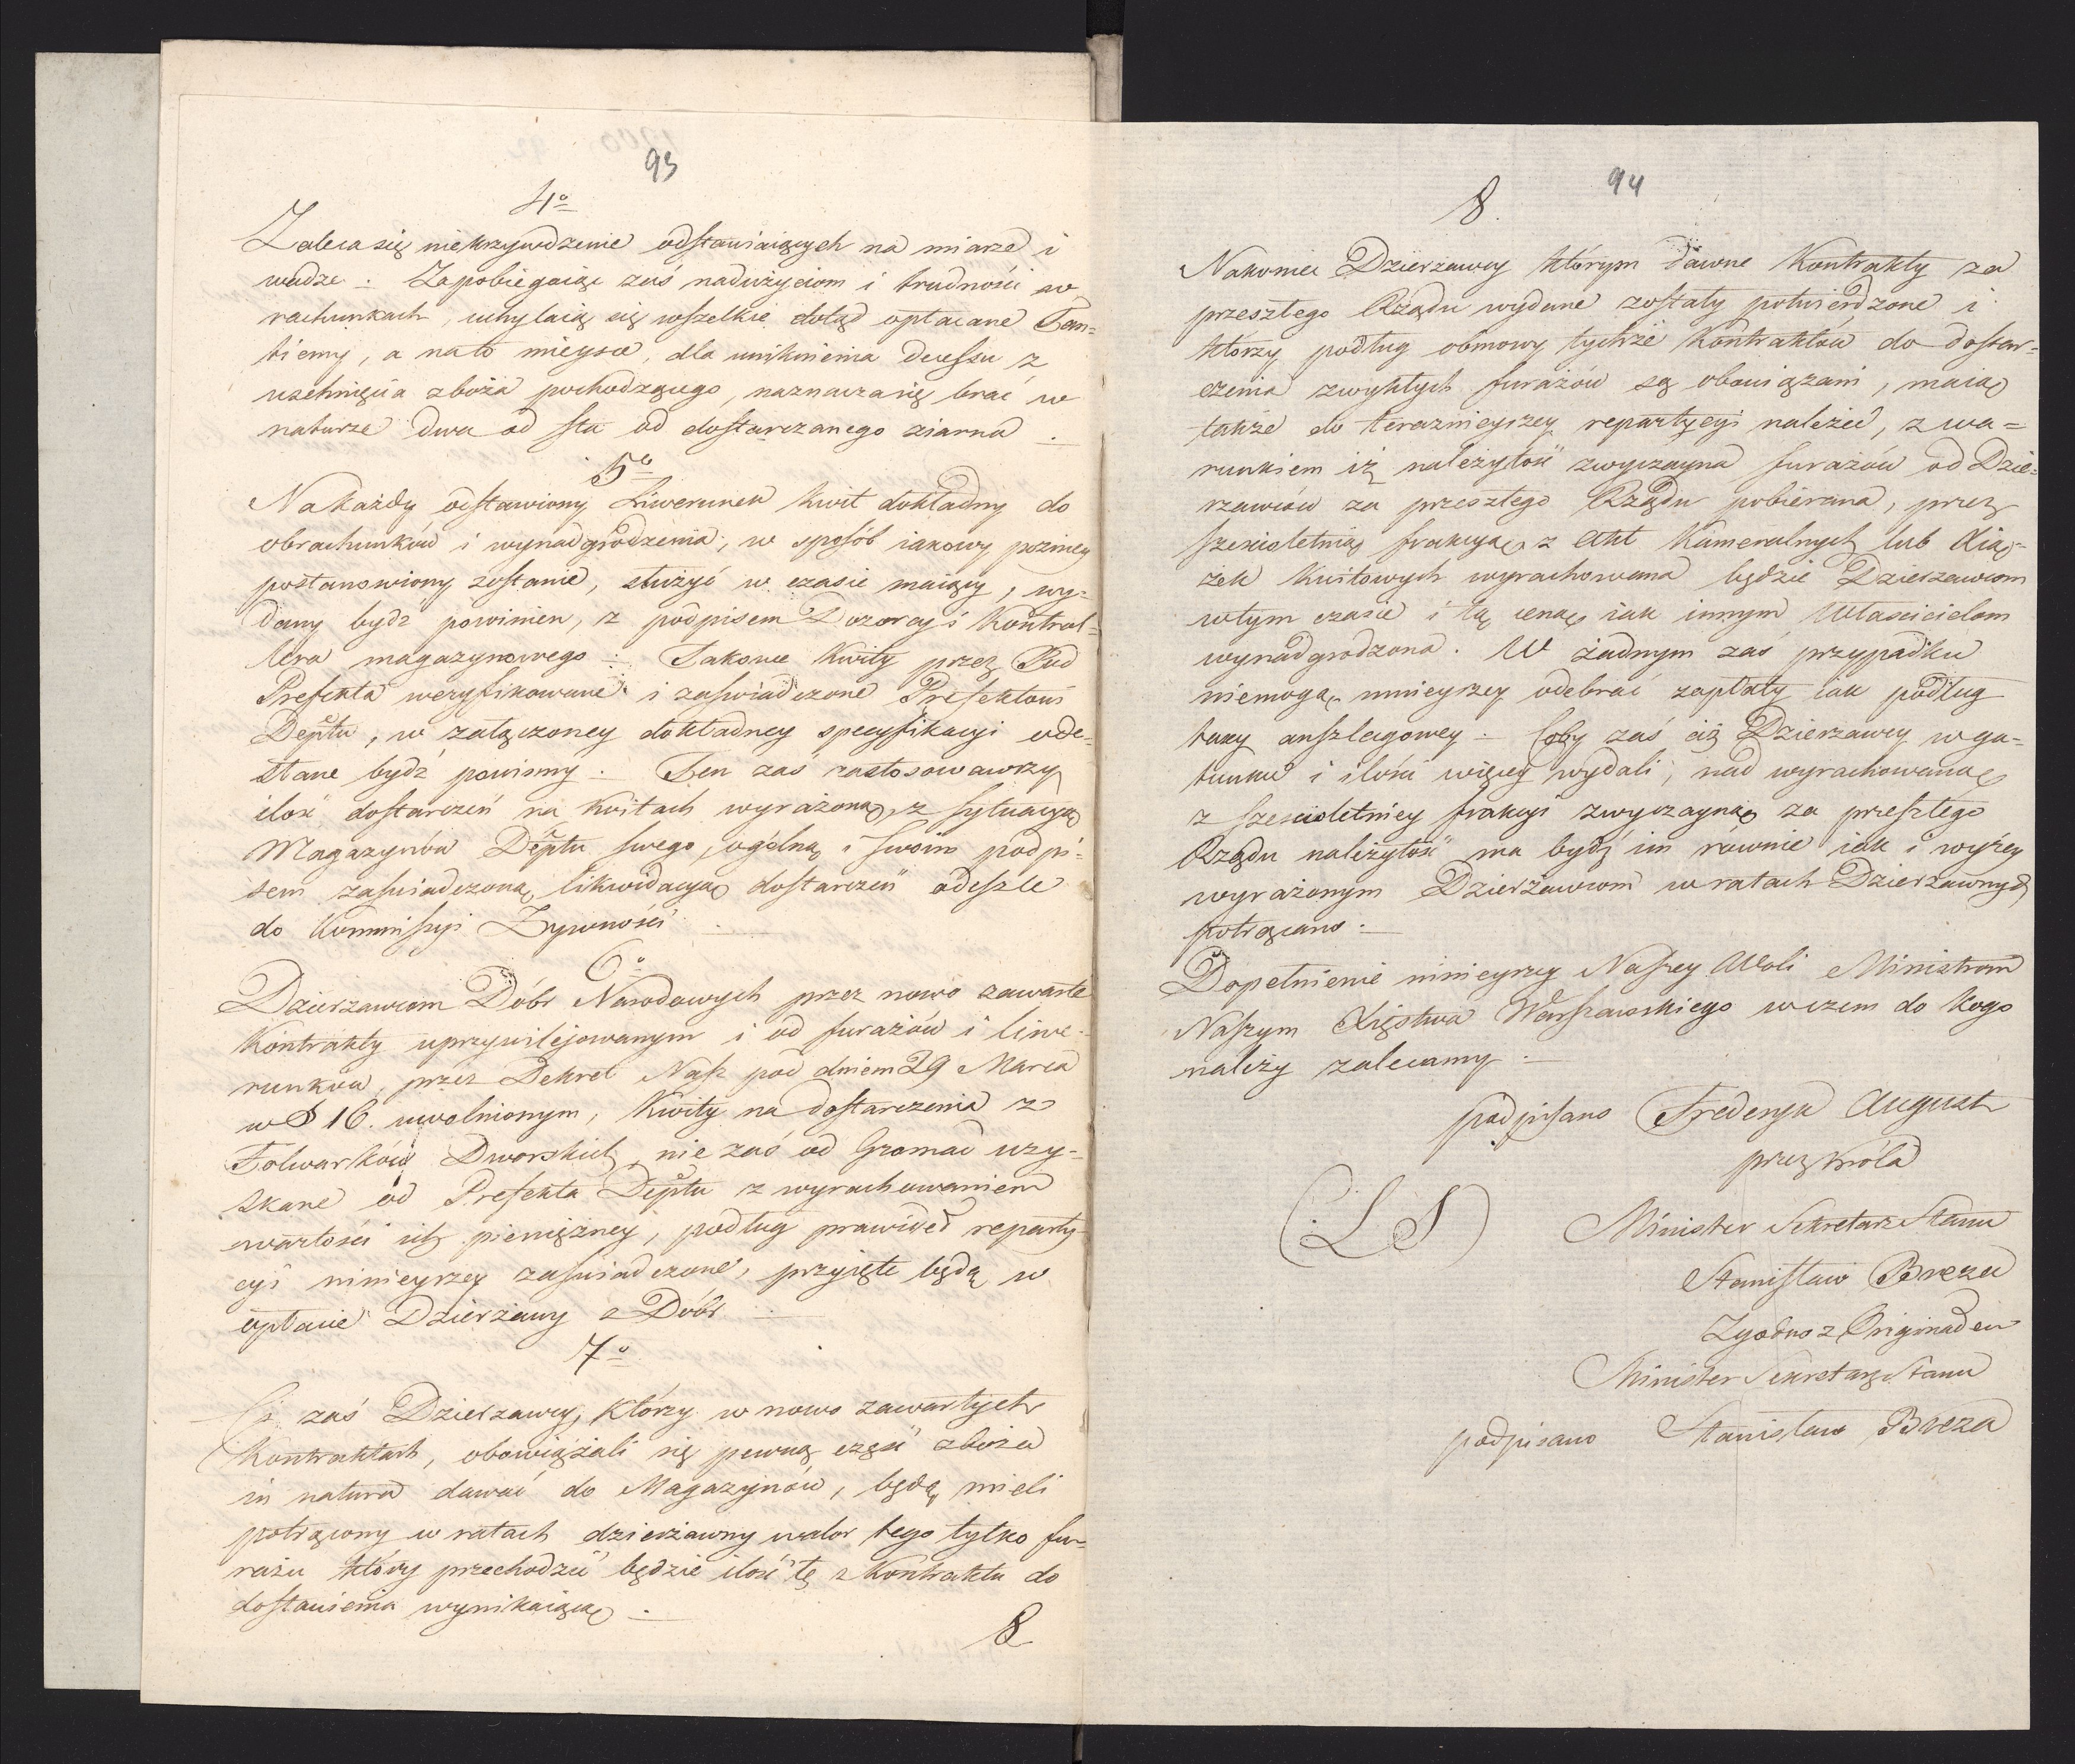 93
4o
Zaleca się niekrzywdzenie odstawiaiących na miarze i
wadze. Zapobiegaiąc zaś nadużyciom i trudności w
rachunkach, uchylaią się wszelkie dotąd opłacane Tan=
tiemy, a na to mieysce, dla uniknienia decessu z
uschnięcia zboża pochodzącego, naznacza się brać w
naturze dwa od sta od dostarczanego ziarna.
5o
Na każdy odstawiony Liwerunek kwit dokładny do
obrachunków i wynadgrodzenia, w sposób iakowy pozniey
postanowiony zostanie, służyć w czasie maiący, wy=
dany bydź powinien, z podpisem Dozorcy i Kontrol=
lera magazynowego. Takowe kwity przez Pod
Prefekta weryfikowane i zaświadczone Prefektowi
Deptu, w załączoney dokładney specyfikacyi ode=
słane bydź powinny. Ten zaś zastosowawszy
ilość dostarczeń na kwitach wyrażoną, z sytuacyą
Magazynów Deptu swego, ogólną i swoim podpi=
sem zaświadczoną likwidacyą dostarczeń odeszle
do Kommissyi Żywności.
6o
Dzierżawcom Dóbr Narodowych przez nowo zawarte
Kontrakty uprzywilejowanym i od furażów i liwe=
runków, przez Dekret Nasz pod dniem 29 Marca
w § 16. uwolnionym, Kwity na dostarczenia z
Folwarków Dworskich, nie zaś od Gromad uzy=
skane od Prefekta Deptu z wyrachowaniem
wartości ich pieniężney, podług prawideł reparty=
cyi ninieyszey zaświadczone, przyięte będą w
opłacie Dzierżawy z Dóbr.
7o
Ci zaś Dzierżawcy, którzy w nowo zawartych
Kontraktach, obowiązali się pewną część zboża
in natura dawać do Magazynów, będą mieli
potrącony w ratach dzierżawny walor tego tylko fu=
rażu który przechodzić będzie ilość tę z Kontraktu do
dostawienia wynikaiącą.
8
94
8.
Nakoniec Dzierżawcy którym dawne Kontrakty za
przeszłego Rządu wydane zostały potwierdzone i
którzy podług obmowy tychże Kontraktów do dostar=
czenia zwykłych furażów są obowiązani, maią
także do terazniejszey repartycyi należeć, z wa=
runkiem iż należytość zwyczayna furażów od Dzie=
rzawców za przeszłego Rządu pobierana, przez
sześcioletnią frakcyą z Akt Kameralnych lub Xią=
żek kwitowych wyrachowana będzie Dzierzawcom
w tym czasie i tą ceną iak innym Właścicielom
wynadgrodzona. W żadnym zaś przypadku
niemogą mnieyszey odebrać zapłaty iak podług
taxy anszlagowey. Coby zaś ciż Dzierzawcy w ga=
tunku i ilości więcey wydali, nad wyrachowaną
z sześcioletniey frakcyi zwyczayną za przeszłego
Rządu należytość ma bydź im równie iak i wyżey
wyrażonym Dzierżawcom w ratach Dzierzawnych
potrącano.
Dopełnienie ninieyszey Naszey Woli Ministrom
Naszym Xięstwa Warszawskiego w czem do kogo
należy zalecamy.
podpisano Frederyk August
przez Króla
(L S)
Minister Sekretarz Stanu
Stanisław Breza
Zgodno z Originałem
Minister Sekretarz Stanu
podpisano Stanisław Breza